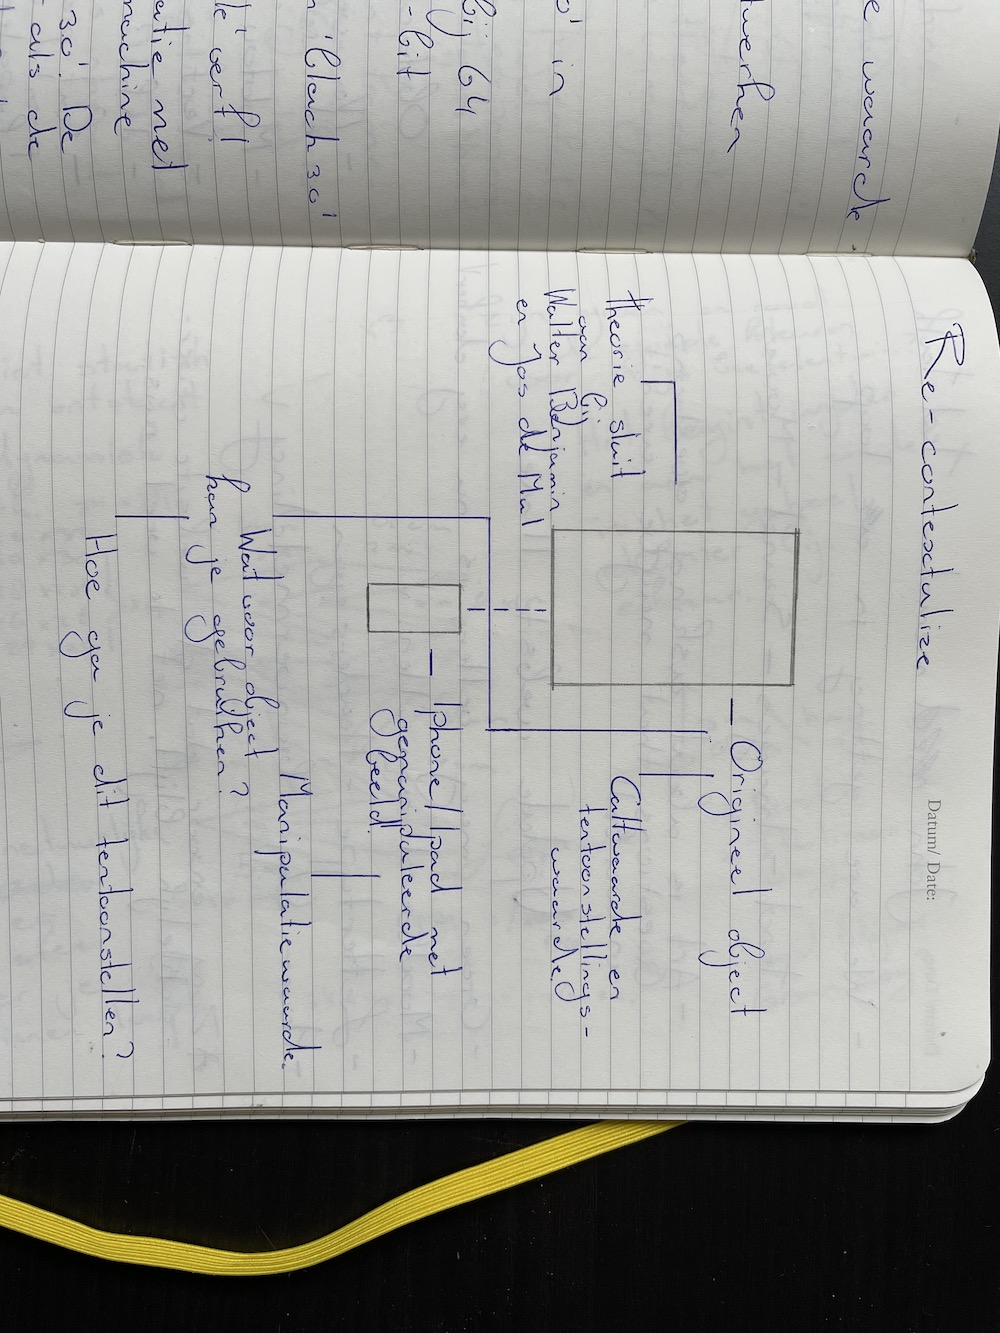 Re-contextulize
Datum/ Date:
e waarde.
twerken
o' in
bij 64
-bit
'Black 30'
le' verf!
atie met
machine
30'. De
als de
Origineel object
theorie sluit
aan bij
Walter Benjamin
en Jos de Mul
Cultwaarde en
tentoonstellings-
waarde
Iphone/Ipad met
gemanipuleerde
beeld.
Manipulatiewaarde.
Wat voor object
kan je gebruiken?
Hoe ga je dit tentoonstellen?